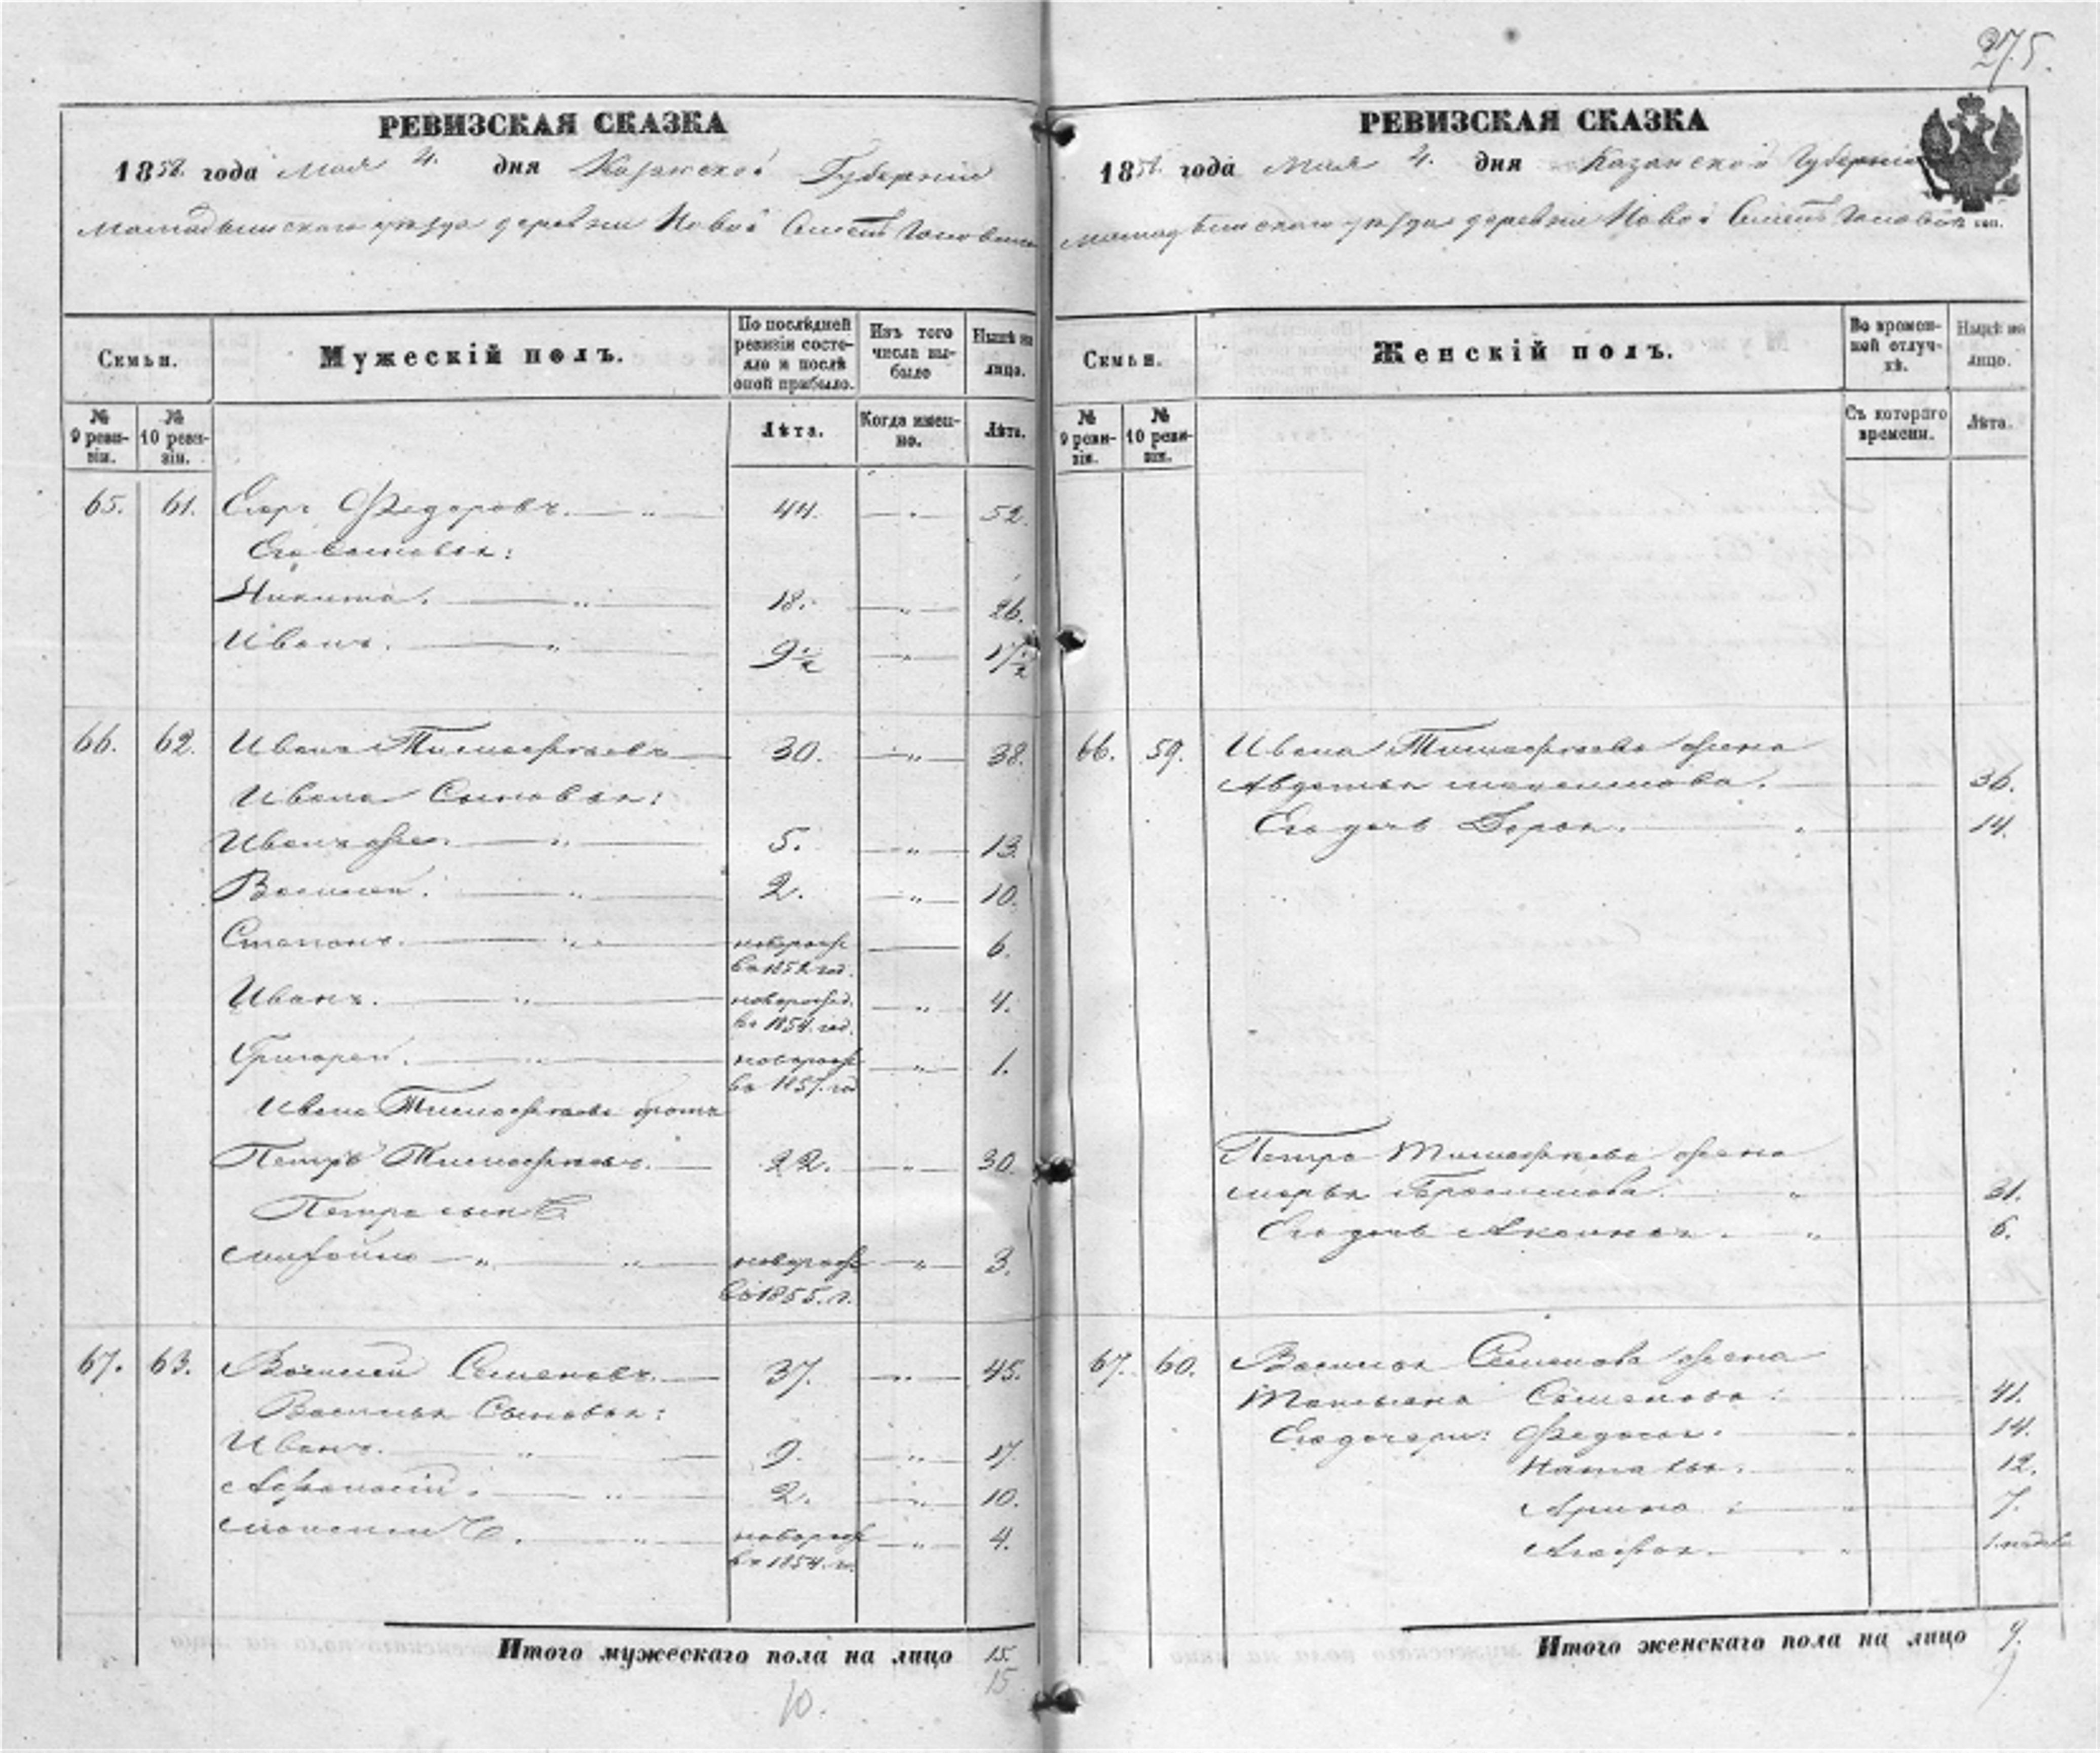 275.
РЕВИЗСКАЯ СКАЗКА
1858. года Мая 4. дня Казанской Губернiи
Мамадышскаго уезда деревни Новой
Семьи.
Мужескiй полъ.
По послѣдней ревизiи состояло и послѣ оной прибыло.
Изъ того числа выбыло
Нынѣ на лицо.
№ 9 ревизiи.
№ 10 ревизiи.
Лѣта.
Когда именно.
Лѣта.
65. 61. Егоръ Федоровъ. 44. 52.
Его сыновья:
Никита. 18. 26.
Иванъ. 9½ 17½
66. 62. Иванъ Тимофеевъ 30. 38.
Ивана Сыновья:
Иванъ же. 5. 13.
Василей. 2. 10.
Степанъ. новорож. 6.
въ 1852 год.
Иванъ. новорожд. 4.
въ 1854. год.
Григорей. новорож 1.
въ 1857. год
Ивана Тимофеева братъ
Петръ Тимофеевъ. 22. 30.
Петра сынъ
Михайло новорож 3.
въ 1855. г.
67. 63. Василей Семеновъ. 37. 45.
Василья Сыновья:
Иванъ. 9. 17.
Афонасiй. 2. 10.
новорож 4.
въ 1854. го.
Итого мужескаго пола на лицо 15.
15
10.
РЕВИЗСКАЯ СКАЗКА
1858. года Мая 4. дня Казанской Губернiи
Мамадышскаго уезда деревни Новой
Семьи.
Женскiй полъ.
Во временной отлучкѣ.
Нынѣ на лицо.
№ 9 ревизiи.
№ 10 ревизiи.
Съ котораго времени.
Лѣта.
66. 59. Ивана Тимофеева жена
Авдотья 36.
Его дочь Дарья. 14.
Петра Тимофеева жена
Марья Герасимова. 31.
Его дочь Аксинья. 6.
67. 60. Василья Семенова жена
Татьяна Семенова. 41.
Его дочери: Федосья. 14.
Наталья. 12.
Арина. 7.
Агафья.
Итого женскаго пола на лицо 9.
9